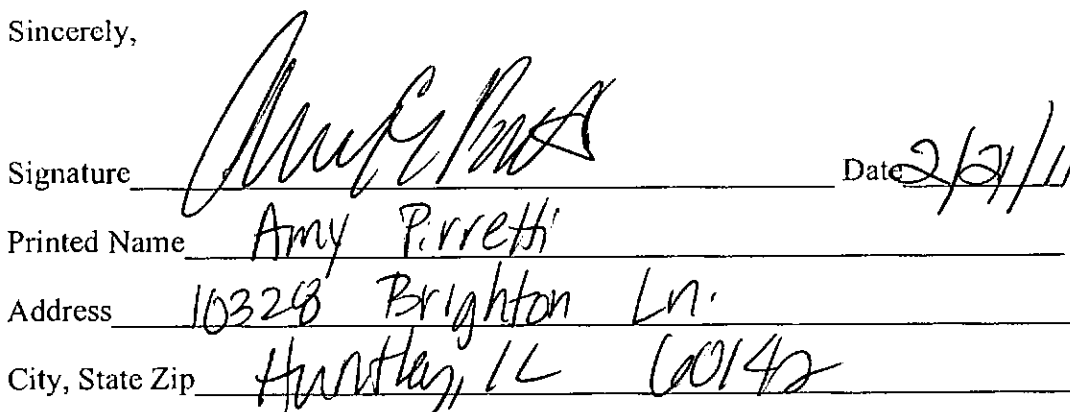 Sincerely,
Signature Date 2/21/11
Printed Name Amy Pirretti
Address 10328 Brighton Ln.
City, State Zip Huntley, IL 60142